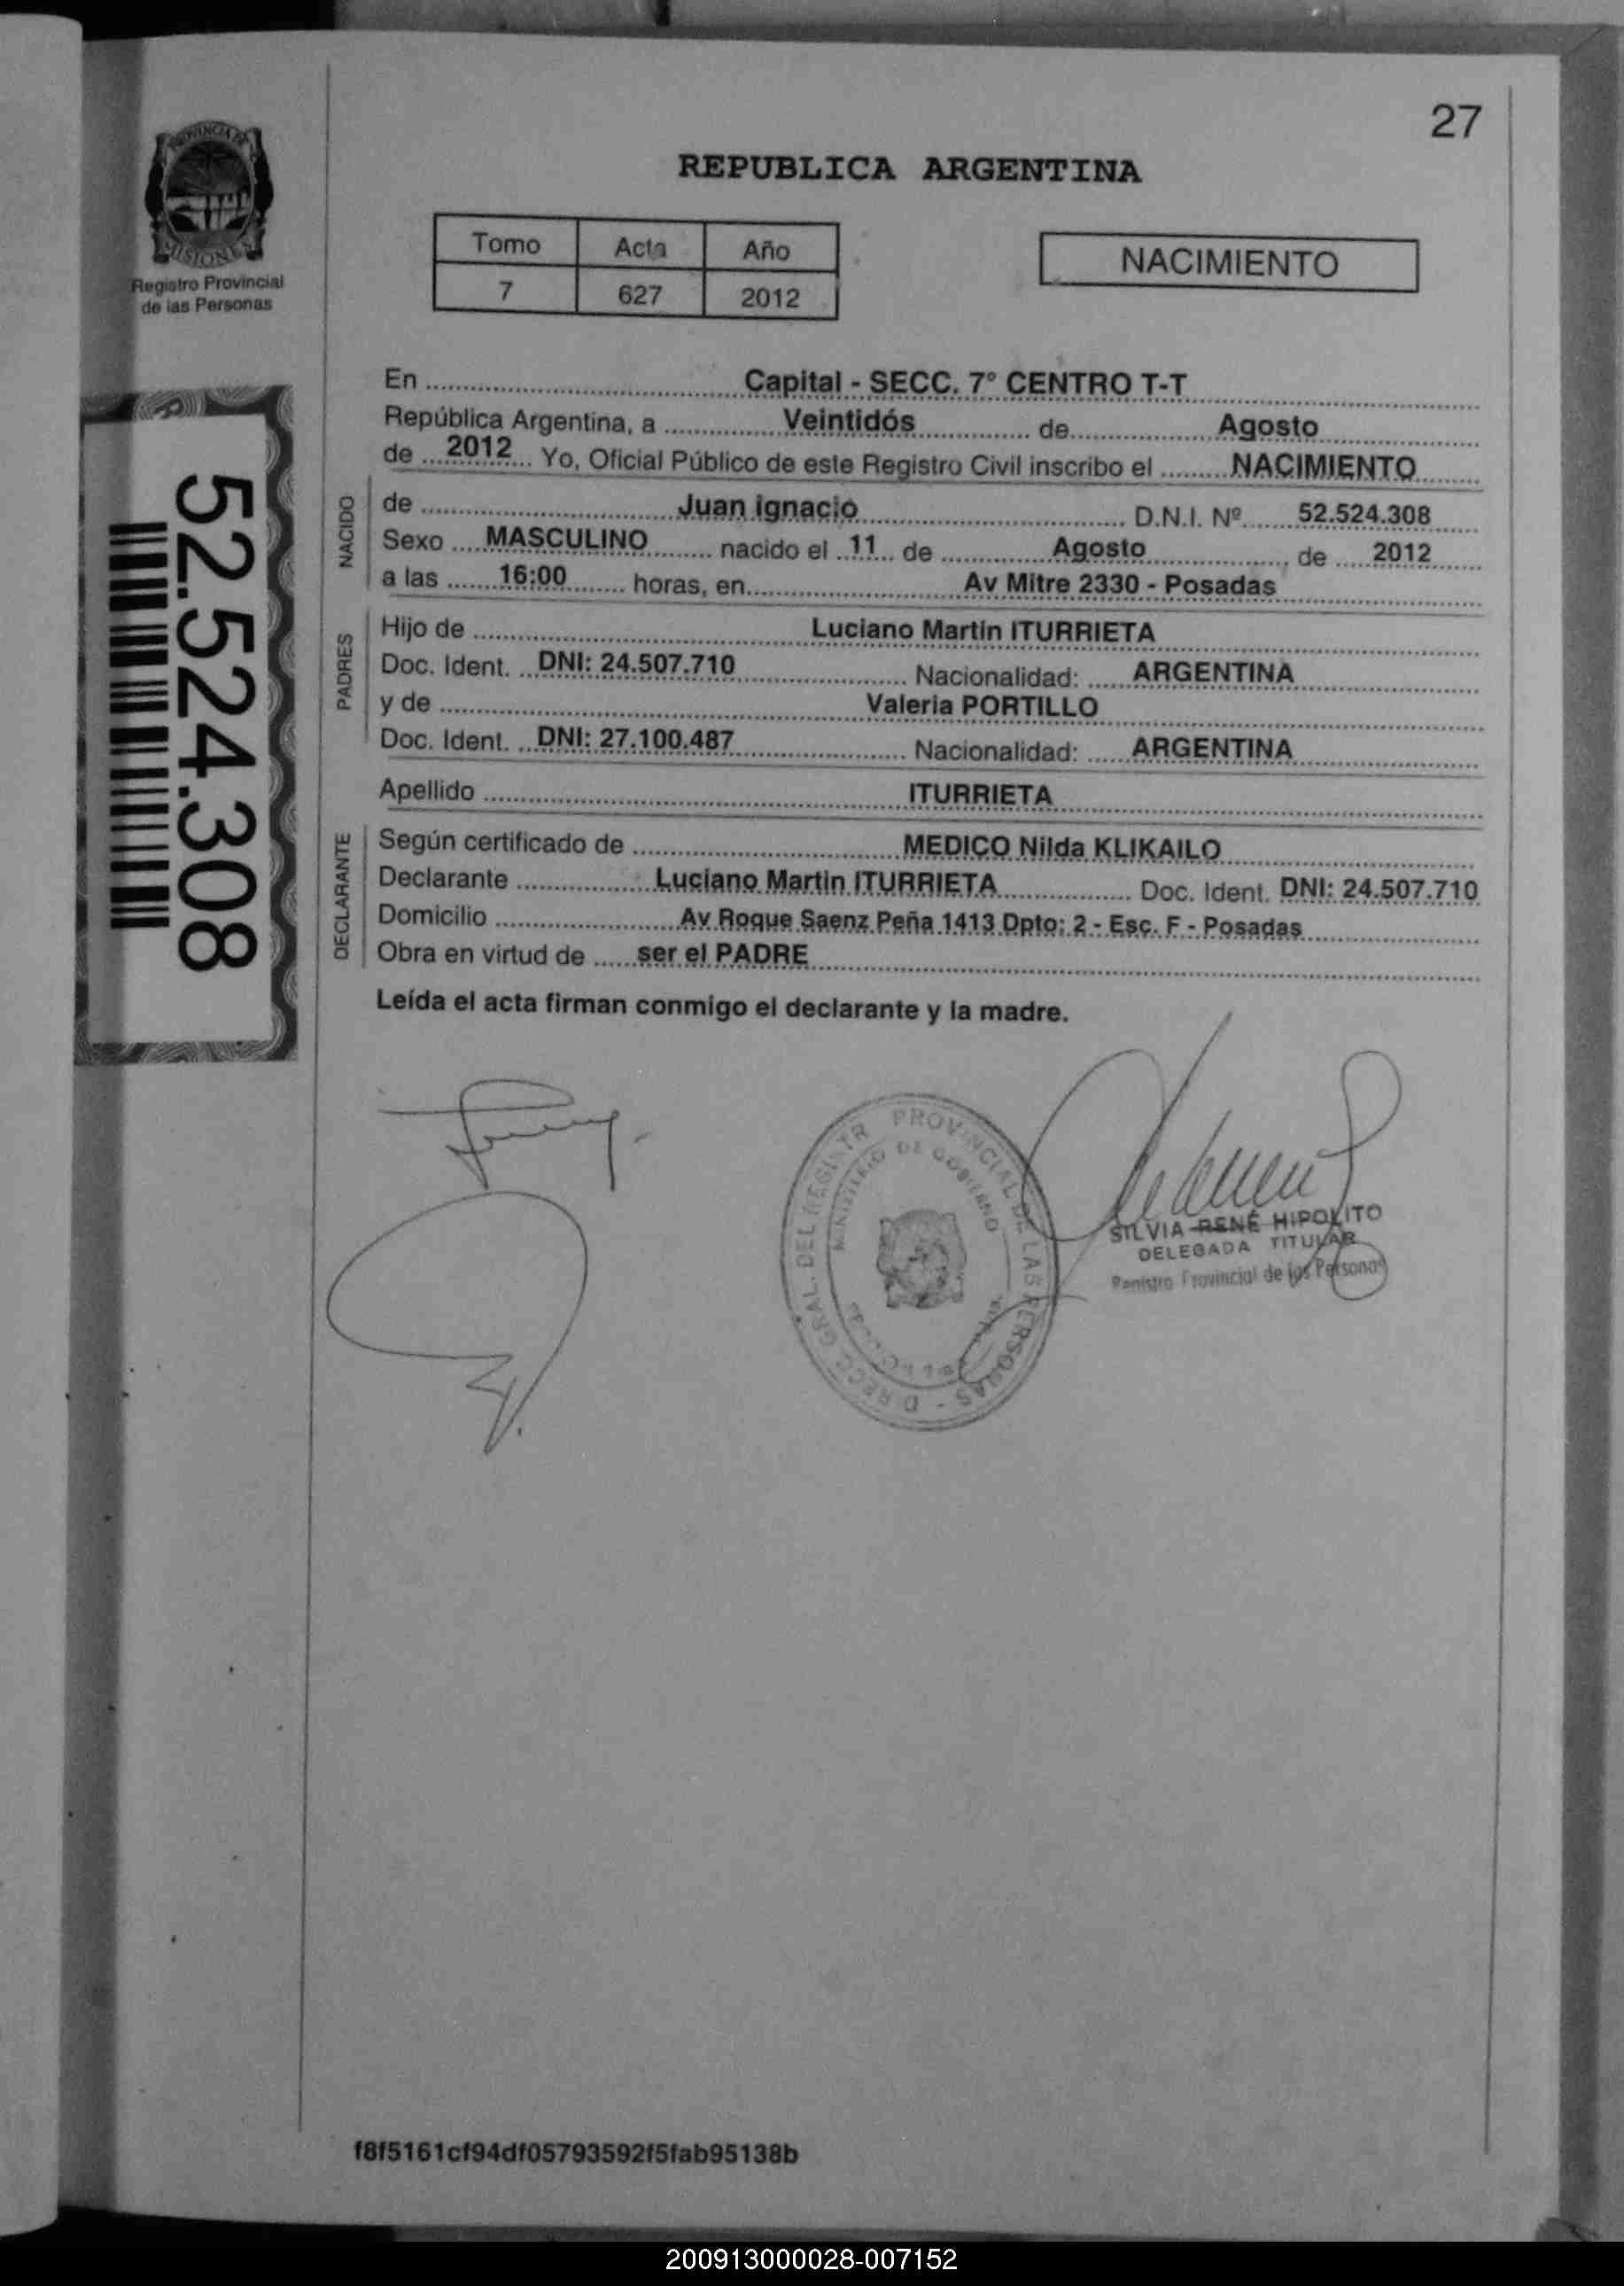 27
PROVINCIA DE
MISIONES
Registro Provincial
de las Personas
REPUBLICA ARGENTINA
Tomo Acta Año
7 627 2012
NACIMIENTO
52.524.308
En Capital - SECC. 7° CENTRO T-T
República Argentina, a Veintidós de Agosto
de 2012 Yo, Oficial Público de este Registro Civil inscribo el NACIMIENTO
NACIDO
de Juan ignacio D.N.I. Nº 52.524.308
Sexo MASCULINO nacido el 11 de Agosto de 2012
a las 16:00 horas, en Av Mitre 2330 - Posadas
PADRES
Hijo de Luciano Martin ITURRIETA
Doc. Ident. DNI: 24.507.710 Nacionalidad: ARGENTINA
y de Valeria PORTILLO
Doc. Ident. DNI: 27.100.487 Nacionalidad: ARGENTINA
Apellido ITURRIETA
DECLARANTE
Según certificado de MEDICO Nilda KLIKAILO
Declarante Luciano Martin ITURRIETA Doc. Ident. DNI: 24.507.710
Domicilio Av Roque Saenz Peña 1413 Dpto: 2 - Esc. F - Posadas
Obra en virtud de ser el PADRE
Leída el acta firman conmigo el declarante y la madre.
DIRECC. GRAL. DEL REGISTR PROVINCIAL DE LAS PERSONAS
MINISTERIO DE GOBIERNO
SILVIA RENÉ HIPOLITO
DELEGADA TITULAR
Registro Provincial de las Personas
f8f5161cf94df05793592f5fab95138b
200913000028-007152